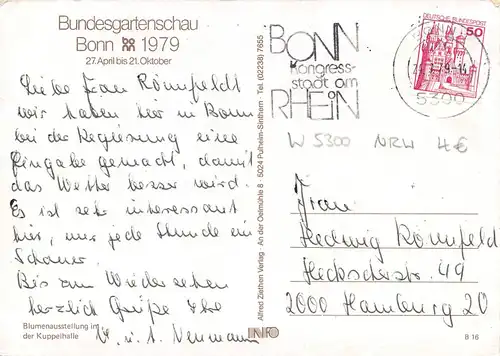 Bundesgartenschau
Bonn 1979
27. April bis 21. Oktober
Liebe Frau Römpfeldt
wir haben hier in Bonn
bei der Regierung eine
Eingabe gemacht, damit
das Wetter besser wird.
Es ist sehr interessant
hier, nur jede Stunde ein
Schauer.
Bis zum Wiedersehen
herzlich Grüße Ihre
u. Neumann
Blumenausstellung in
der Kuppelhalle
Alfred Ziethen Verlag · An der Oelmühle 8 · 5024 Pulheim-Sinthern · Tel. (02238) 7655
BONN
Kongress-
stadt am
RHEIN
DEUTSCHE BUNDESPOST
50
5300
W 5300 NRW 4€
Frau
Hedwig Römpfeld
Heckscherstr. 49
2000 Hamburg 20
INFO
B 16